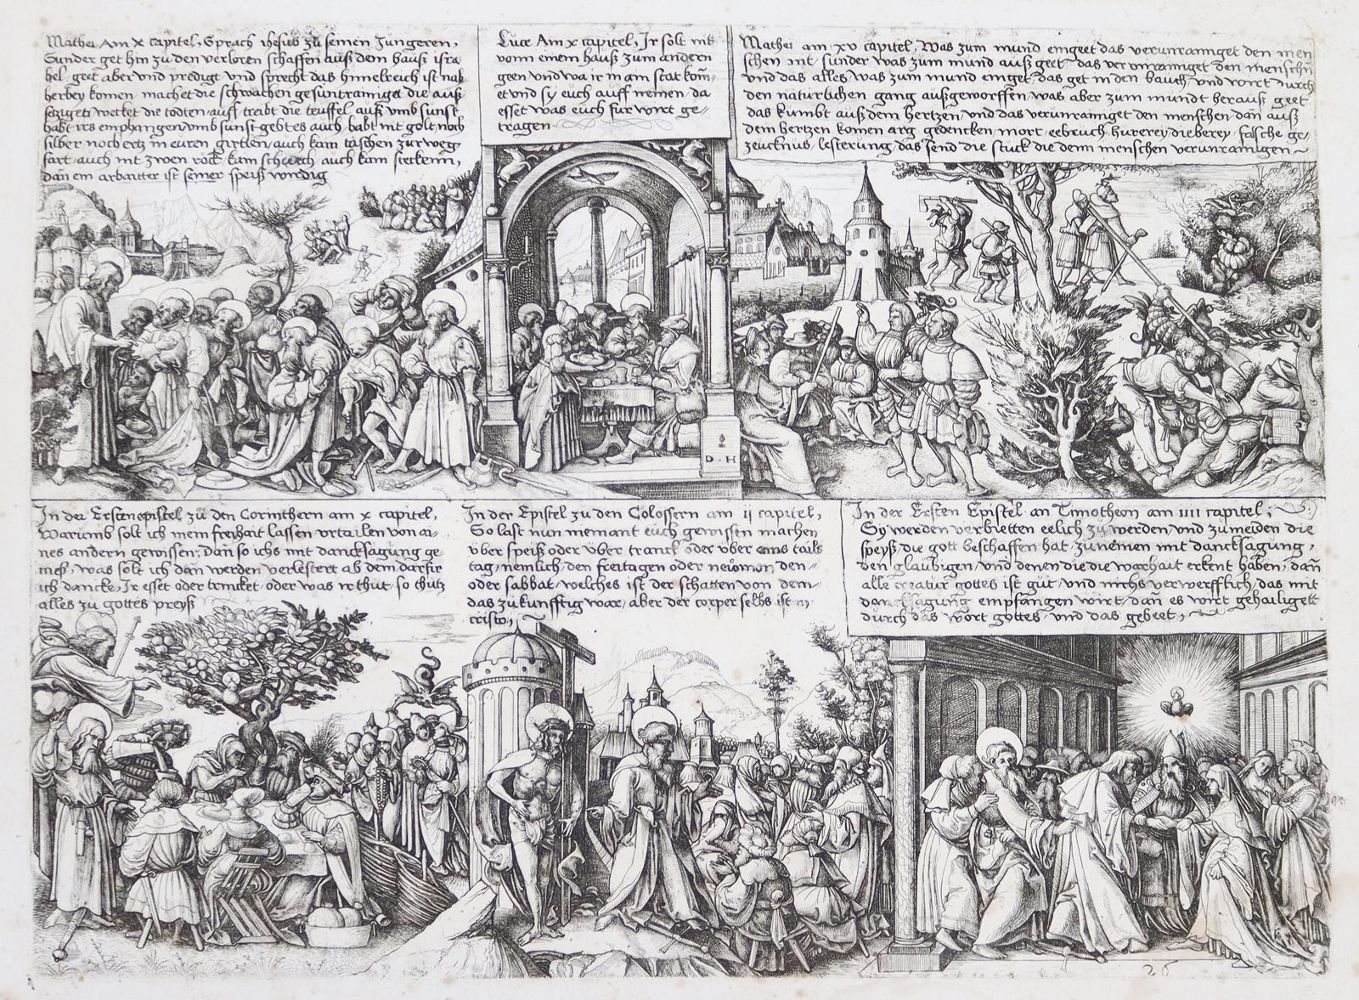 Mathei Am X capitel, Sprach ihesus zu seinen Jungeren,
Sunder get hin zu den verloren schaffen auß dem hauß isra
hel, geet aber und predigt und sprecht das himelreich ist nah
herbey komen machet die schwachen gesunt rainiget die auß
setzigen, wecket die todten, auß treibt die teuffel, auß umb sunst
habt irs empfangen umb sunst gebt es auch, habt nit golt noch
silber noch ertz in euren girtlen, auch kain taschen zur weg
fart, auch nit zwen röck kain schuech, auch kain stecken,
dan ein arbaitter ist seiner speiß wirdig
Luce Am x capitel, Ir solt nit
vonn einem hauß zum andern
geen und wa ir in ain stat kom-
et und sy euch auff nemen, da
esset was euch fur wirt ge-
tragen
Mathei am xv capitel, Was zum mund eingeet das verunrainiget den men
schen nit, sunder was zum mund auß geet, das verunrainiget den menschen
und das alles was zum mund einget, das get in den bauch, und wirt durch
den naturlichen gang außgeworffen, was aber zum mundt herauß geet
das kumbt auß dem hertzen, und das verunrainiget den menschen, dan auß
dem hertzen komen arg gedencken, mort, eebruch, hurerey, dieberey, falsche ge-
zeucknus, lesterung, das send die stuck die denn menschen verunrainigen
D H
In der Ersten epistel zu den Corinthern am x capitel,
Warumb solt ich mein freihait lassen urtailen von ai-
nes andern gewissen, Dan so ichs mit dancksagung ge-
nieß, was solt ich dan werden verlestert ab dem darfir
ich dancke, Ir esset oder trincket, oder was ir thut, so thutz
alles zu gottes preyß
In der Epistel zu den Colossern am ii capitel,
So last nun niemant euch gewissen machen
uber speiß oder uber tranck oder uber ains tails
tag, nemlich, den freitagen oder neumon, den-
oder sabbat, welches ist der schatten von dem-
das zukunfftig war, aber der corper selbs ist in
cristo,
In der Ersten Epistel an Timotheon am iiii capitel,
Sy werden verbietten eelich zu werden, und zu meiden die
speyß, die gott beschaffen hat, zu nemen mit dancksagung,
den glaubigen, und denen die die warhait erkent haben, dan
alle creatur gottes ist gut, und nichs verwerfflich, das mit
dancksagung empfangen wirt, dan es wirt gehailiget
durch das wort gottes, und das gebeet,